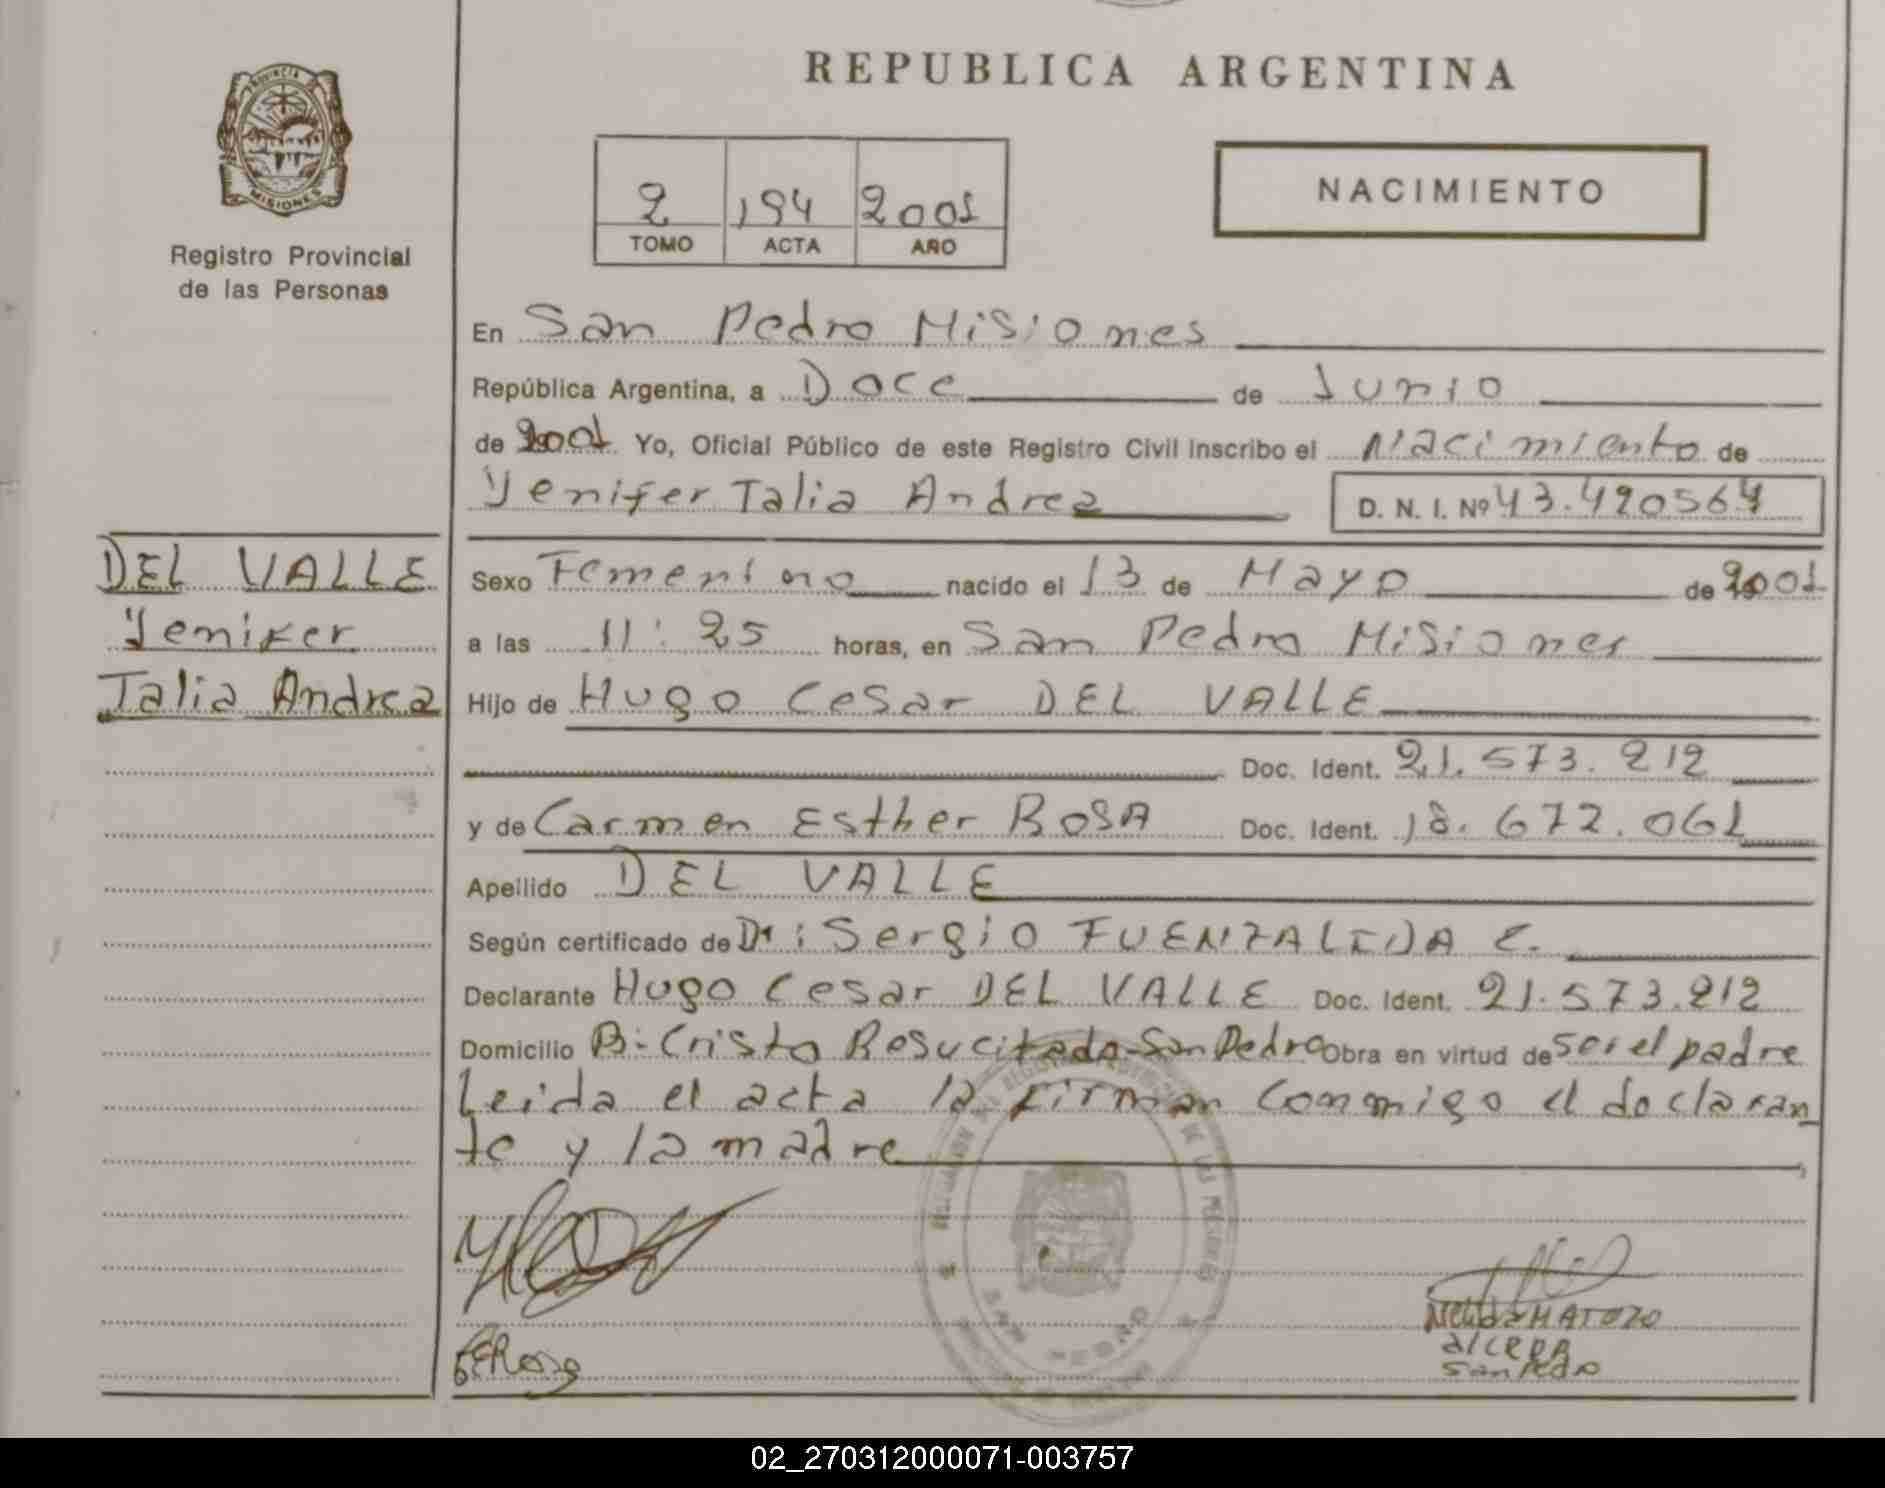 REPUBLICA ARGENTINA
PROVINCIA
MISIONES
Registro Provincial
de las Personas
2 194 2001
TOMO ACTA AÑO
NACIMIENTO
En San Pedro Misiones
República Argentina, a Doce de Junio
de 2001 Yo, Oficial Público de este Registro Civil inscribo el Nacimiento de
Yenifer Talia Andrea D. N. I. Nº 43.420564
DEL VALLE
Yenifer
Talia Andrea
Sexo Femenino nacido el 13 de Mayo de 2001
a las 11:25 horas, en San Pedro Misiones
Hijo de Hugo Cesar DEL VALLE
Doc. Ident. 21.573.212
y de Carmen Esther ROSA Doc. Ident. 18.672.061
Apellido DEL VALLE
Según certificado de Dr: Sergio FUENZALIDA C.
Declarante Hugo Cesar DEL VALLE Doc. Ident. 21.573.212
Domicilio B: Cristo Resucitado-San Pedro Obra en virtud de ser el padre
Leida el acta la firman conmigo el declaran
te y la madre
SAN PEDRO
MATOZO
San Pedro
02_270312000071-003757